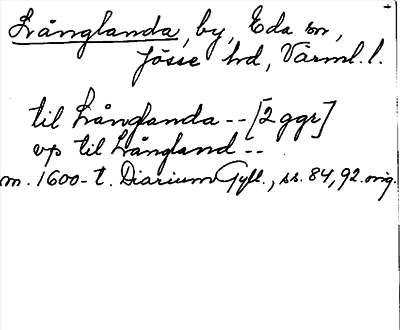 Långlanda, by, Eda sn,
Jösse hd, Värml. l.
til Långlanda -- [2 ggr]
vp til Långland --
m. 1600-t. Diarium Gyll., ss. 84, 92. orig.